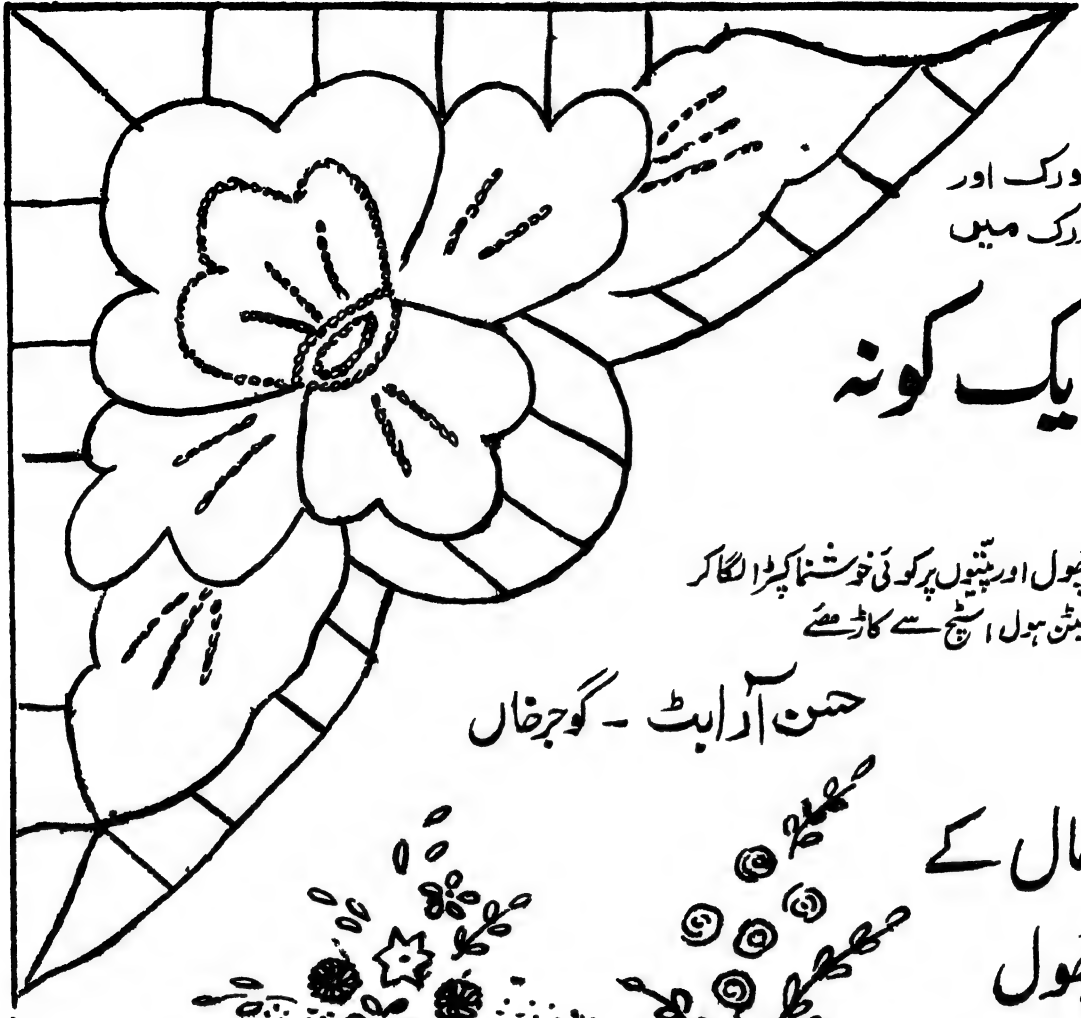 ورک اور
ورک میں
یک کونہ
پھول اور پتّیوں پر کوئی خوشنما کپڑا لگا کر
بٹن ہول اسٹیچ سے کاڑھئے
حسن آرا بٹ - گوجرخاں
کے